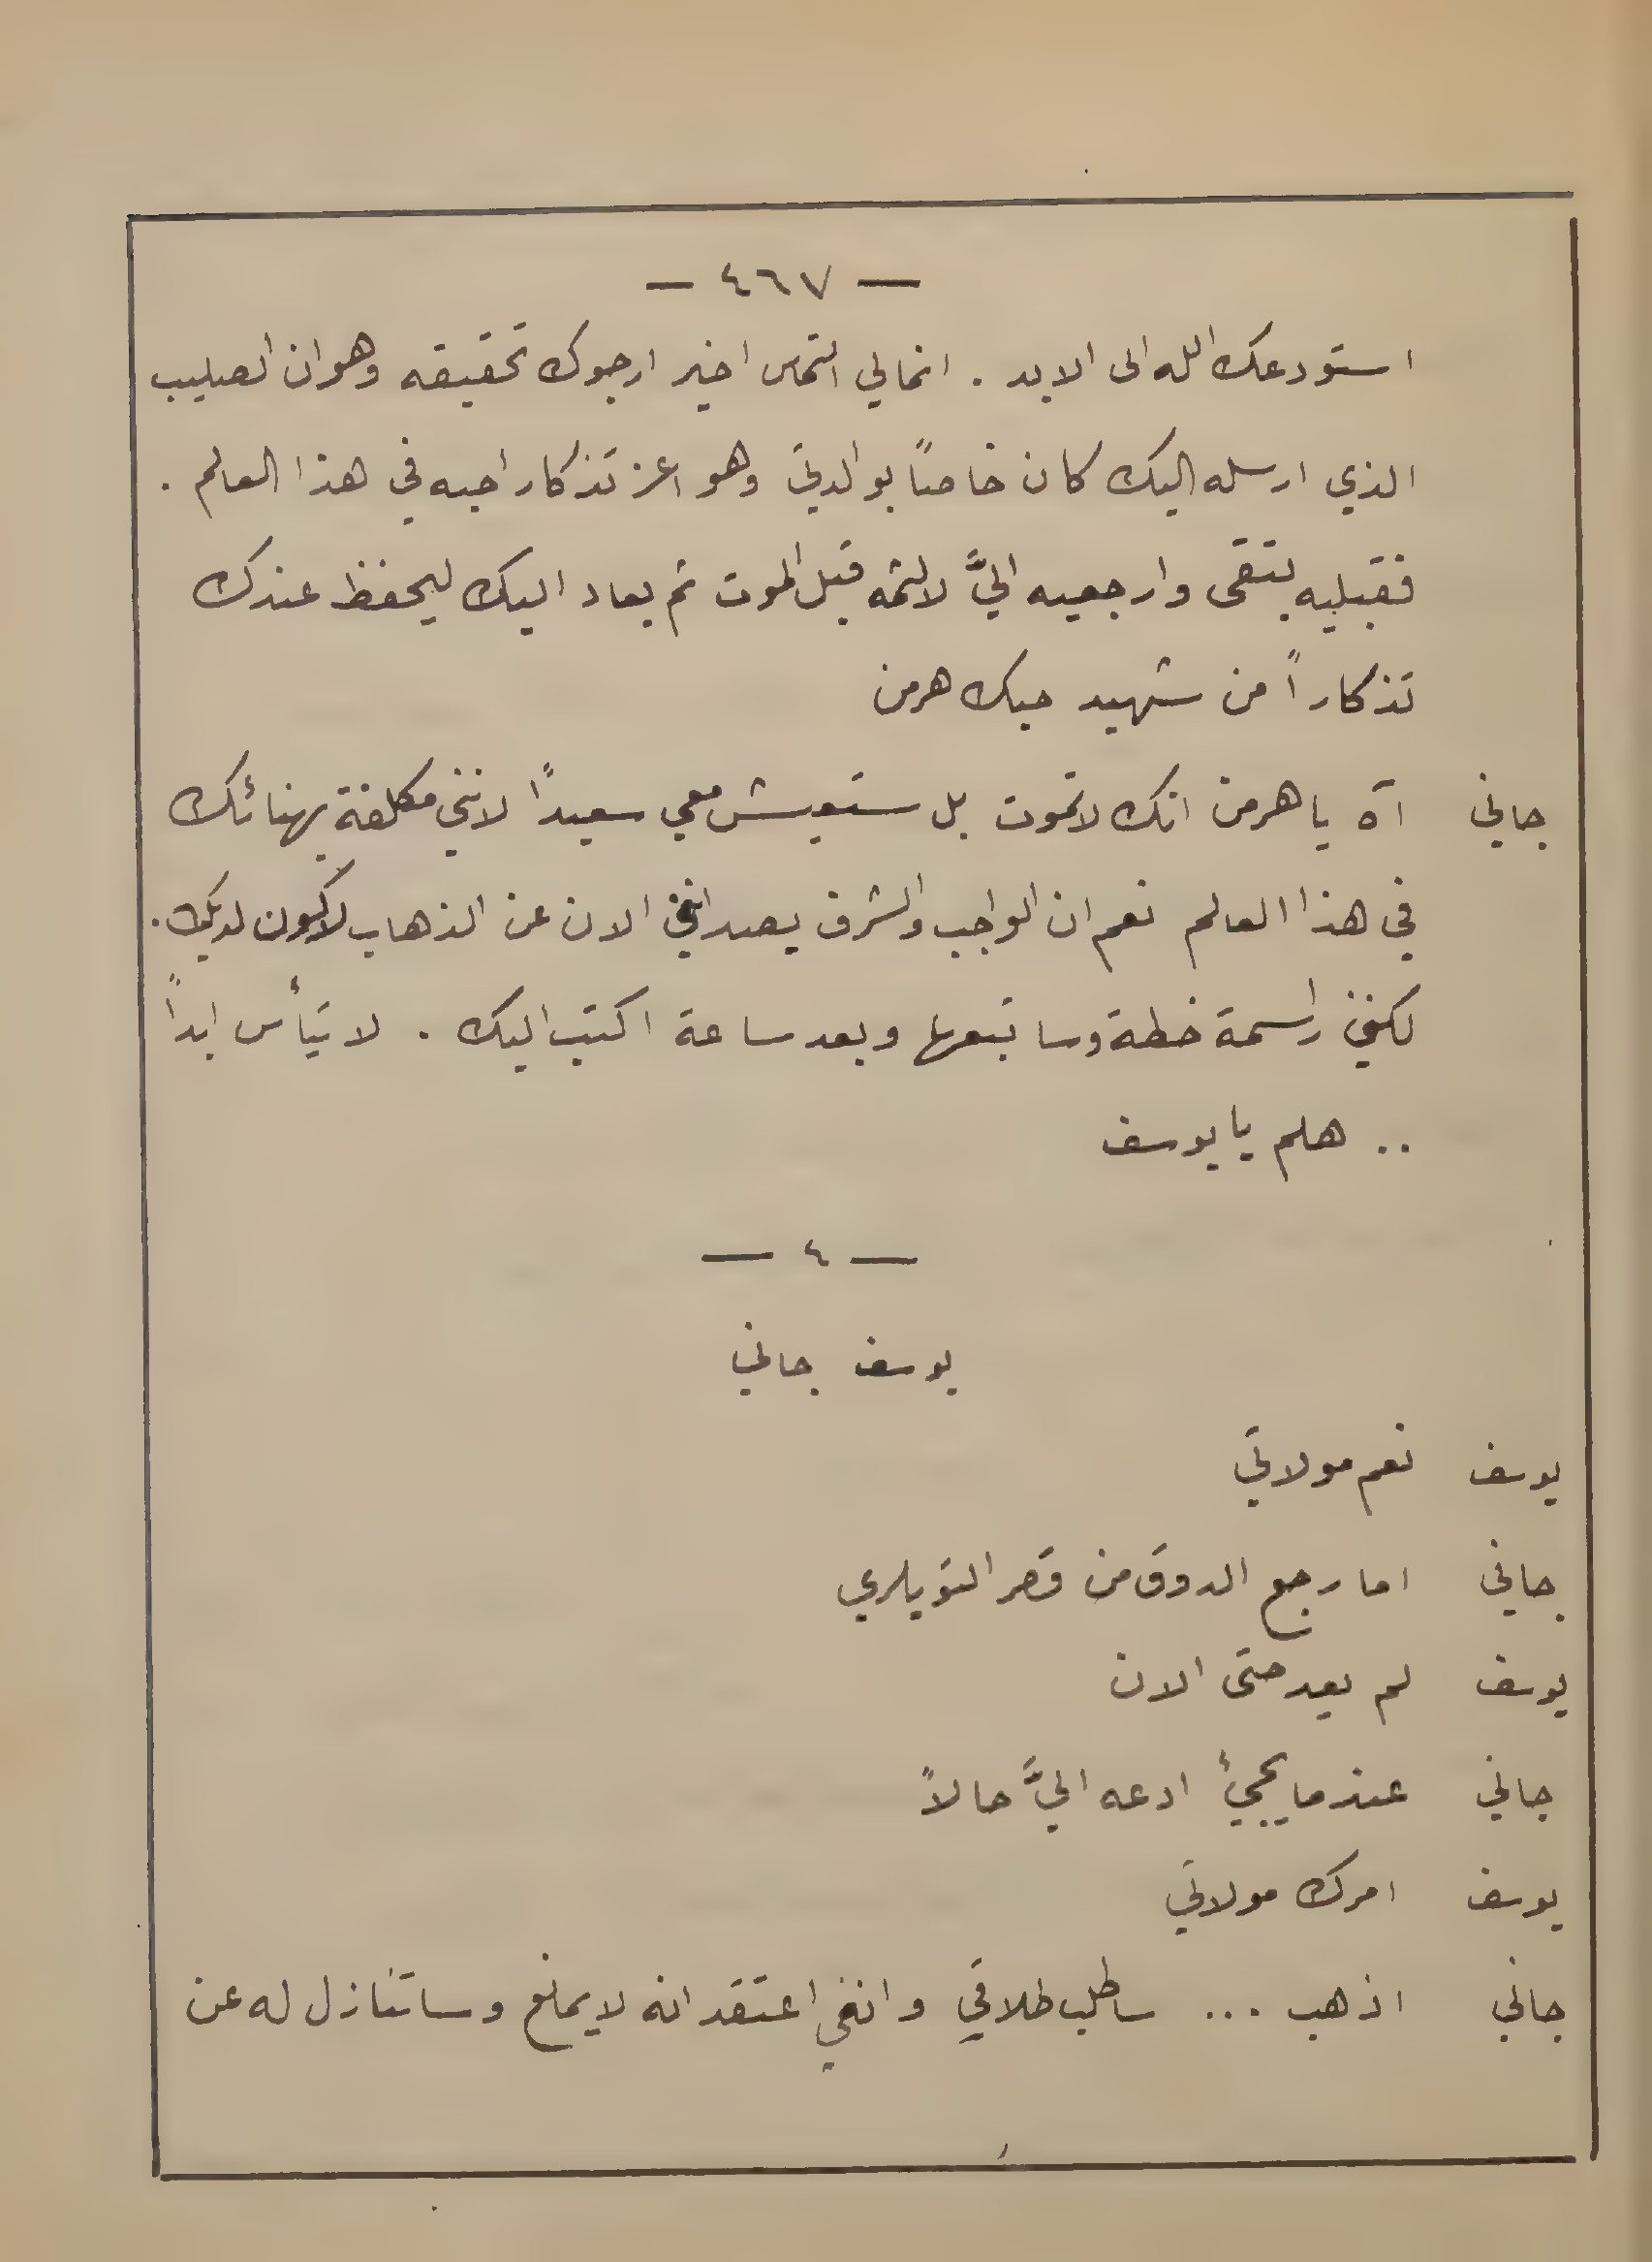 — ٤٦٧ —
استودعك الله الى الابد . انما لي التماس اخير ارجوك تحقيقه وهو ان الصليب
الذي ارسله اليك كان خاصاً بوالدتي وهو اعز تذكار احبه في هذا العالم .
فقبليه بتقى وارجعيه اليَّ لالثمه قبل الموت ثم يعاد اليك ليحفظ عندك
تذكاراً من شهيد حبك هرمن
جاني آه يا هرمن انك لا تموت بل ستعيش معي سعيداً لانني مكلفة بهنائك
في هذا العالم نعم ان الواجب والشرف يصدانني الان عن الذهاب لاكون لديك .
لكنني راسمة خطة وساتبعها وبعد ساعة اكتب اليك . لا تيأس ابداً
.. هلم يا يوسف
— ٤ —
يوسف جاني
يوسف نعم مولاتي
جاني اما رجع الدوق من قصر التويلري
يوسف لم يعد حتى الان
جاني عندما يجيئ ادعه اليَّ حالاً
يوسف امرك مولاتي
جاني اذهب ... ساطلب طلاقي وانني اعتقد انه لا يمانع وساتنازل له عن